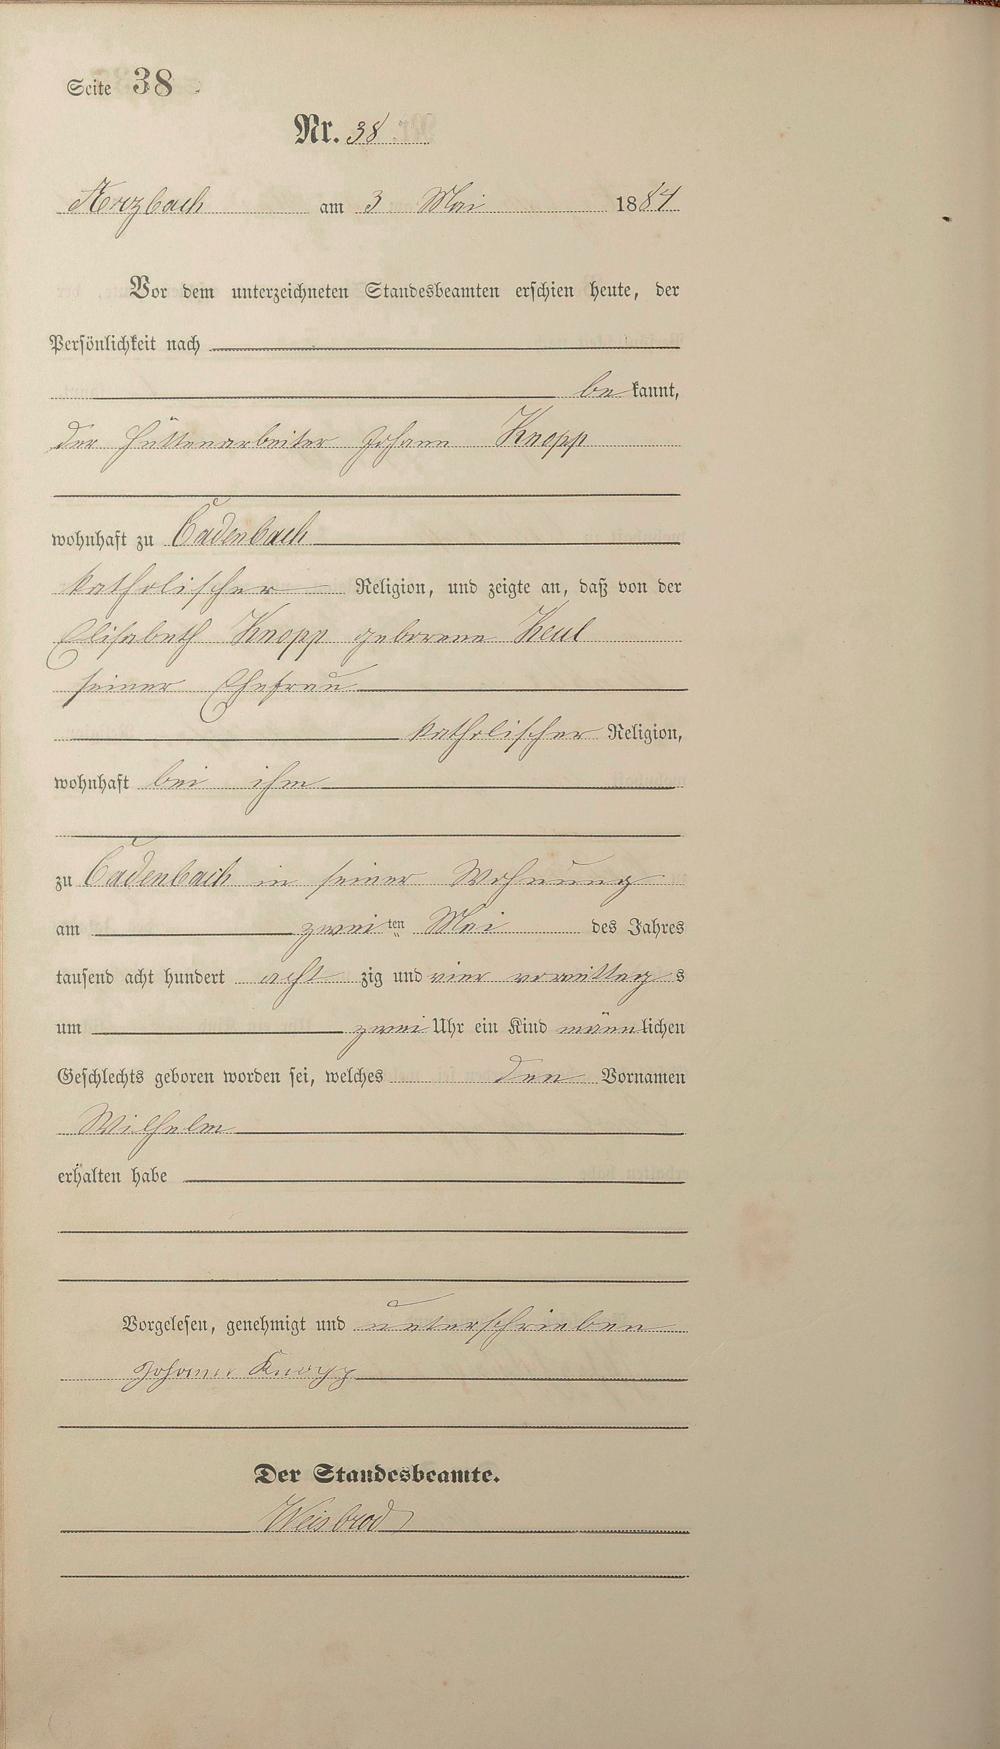 Seite 38
Nr. 38
Arzbach am 3 Mai 1884
Vor dem unterzeichneten Standesbeamten erschien heute, der
Persönlichkeit nach
bekannt,
der Hüttenarbeiter Johann Knopp
wohnhaft zu Cadenbach
katholischer Religion, und zeigte an, daß von der
Elisabeth Knopp geborene Keul
seiner Ehefrau
katholischer Religion,
wohnhaft bei ihm
zu Cadenbach in seiner Wohnung
am zweiten Mai des Jahres
tausend acht hundert achtzig und vier vormittags
um zwei Uhr ein Kind männlichen
Geschlechts geboren worden sei, welches den Vornamen
Wilhelm
erhalten habe
Vorgelesen, genehmigt und unterschrieben
Johann Knopp
Der Standesbeamte.
Weisbrod